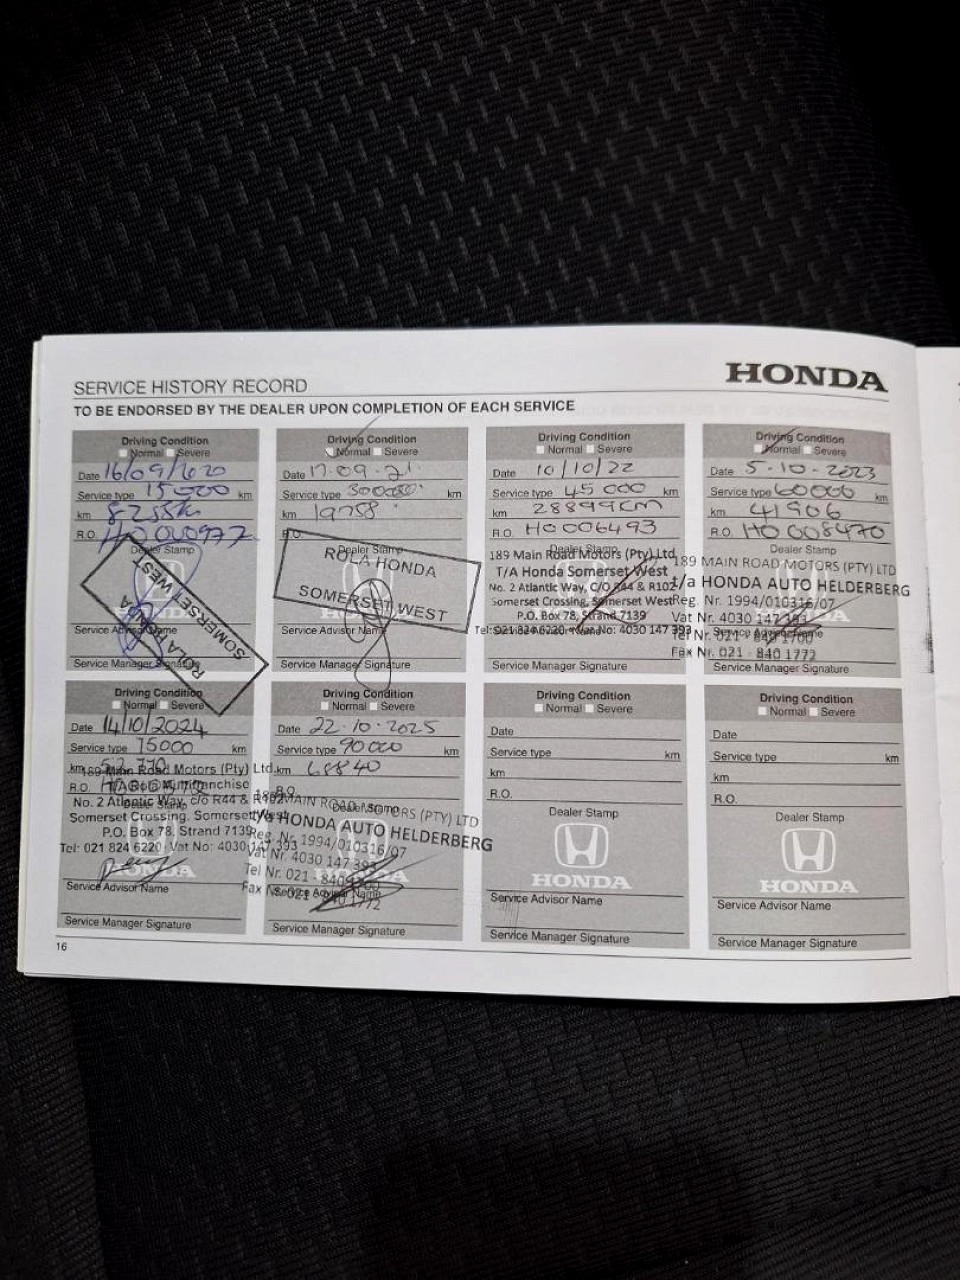 SERVICE HISTORY RECORD
HONDA
TO BE ENDORSED BY THE DEALER UPON COMPLETION OF EACH SERVICE
Driving Condition
Normal Severe
Date 16/09/2020
Service type 15000 km
km
R.O. HO000977
Dealer Stamp
ROLA HONDA
SOMERSET WEST
Service Advisor Name
Service Manager Signature
Driving Condition
Normal Severe
Date 17-09-21
Service type km
km 19758
R.O.
Dealer Stamp
ROLA HONDA
SOMERSET WEST
Service Advisor Name
Service Manager Signature
Driving Condition
Normal Severe
Date 10/10/22
Service type 45000 km
km 28899KM
R.O. HO006493
Dealer Stamp
189 Main Road Motors (Pty) Ltd
T/A Honda Somerset West
No. 2 Atlantic Way, C/O R44 & R102
Somerset Crossing, Somerset West
P.O. Box 78, Strand 7139
Tel: 021 824 6220 Vat No: 4030 147 393
Service Manager Signature
Driving Condition
Normal Severe
Date 5-10-2023
Service type 60000 km
km 41906
R.O. HO008470
Dealer Stamp
189 MAIN ROAD MOTORS (PTY) LTD
t/a HONDA AUTO HELDERBERG
Reg. Nr. 1994/010316/07
Vat Nr. 4030 147 393
Tel Nr. 021 - 840 1700
Fax Nr. 021 - 840 1772
Service Manager Signature
Driving Condition
Normal Severe
Date 14/10/2024
Service type 75000 km
km
189 Main Road Motors (Pty) Ltd
R.O.
No. 2 Atlantic Way, c/o R44 & R102
Somerset Crossing, Somerset West
P.O. Box 78, Strand 7139
Tel: 021 824 6220 Vat No: 4030 147 393
HONDA
Service Advisor Name
Service Manager Signature
Driving Condition
Normal Severe
Date 22-10-2025
Service type 90000 km
km 68840
R.O.
189 MAIN ROAD MOTORS (PTY) LTD
t/a HONDA AUTO HELDERBERG
Reg. Nr. 1994/010316/07
Vat Nr. 4030 147 393
Tel Nr. 021 - 840
Fax Nr. 021 - 840 1772
Service Advisor Name
Service Manager Signature
Driving Condition
Normal Severe
Date
Service type km
km
R.O.
Dealer Stamp
HONDA
Service Advisor Name
Service Manager Signature
Driving Condition
Normal Severe
Date
Service type km
km
R.O.
Dealer Stamp
HONDA
Service Advisor Name
Service Manager Signature
16